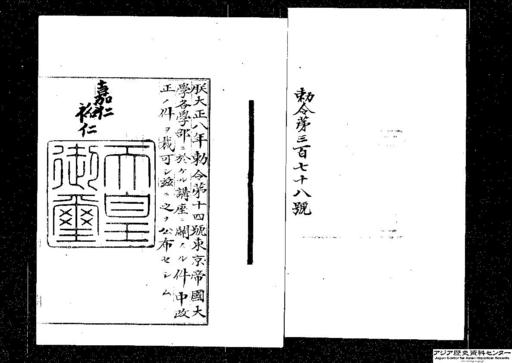 勅令第三百七十八號
朕大正八年勅令第十四號東京帝國大
學各學部ニ於ケル講座ニ關スル件中改
正ノ件ヲ裁可シ茲ニ之ヲ公布セシム
嘉仁
裕仁
天皇
御璽
アジア歴史資料センター
Japan Center for Asian Historical Records